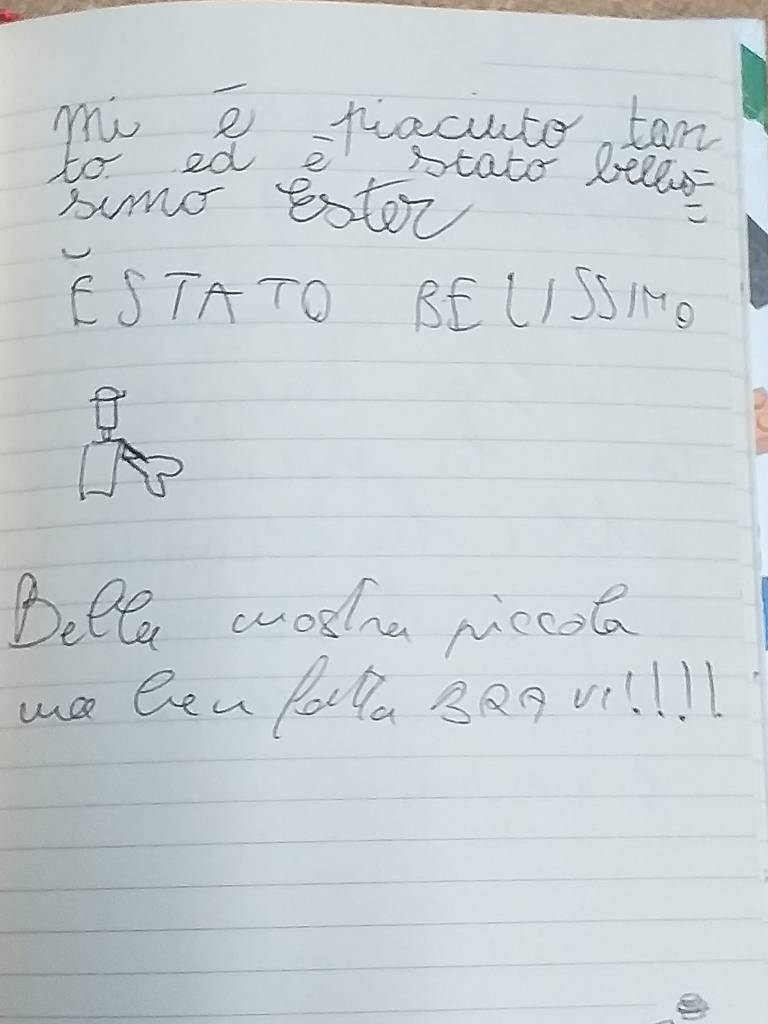 mi è piaciuto tan
to ed è stato bellis=
simo Ester
È STATO BELISSIMO
Bella mostra piccola
ma ben fatta BRAVI!!!!